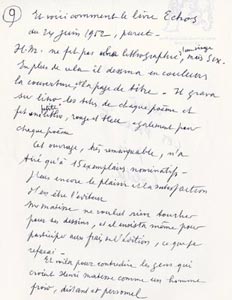 9
Et voici comment le livre Echos
du 24 juin 1952, parut.
H.M. ne fit pas lithographie, mais six.
En plus de cela il dessina en couleurs
la couverture et la page de titre. Il grava
sur lino les titres de chaque poème et
fit rouge et bleu également pour
chaque poème
Cet ouvrage, très remarquable, n'a
tiré qu'à 15 exemplaires nominatifs.
J'eus encore le plaisir et la satisfaction
d'en être l'éditeur
Mr Matisse ne voulut rien toucher
pour ses dessins, et et insista même pour
participer aux frais de l'édition, ce que je
refusai.
Et voilà pour contredire les gens qui
croient Henri Matisse comme un homme
froid, distant et personnel